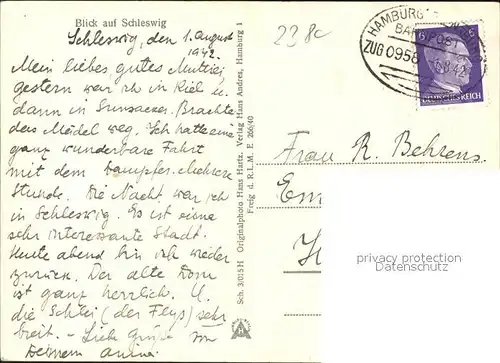 Blick auf Schleswig
Schleswig, den 1. August
1942.
Mein liebes gutes Muttilei,
gestern war ich in Kiel u.
dann in Brachte
das Mädel weg. Ich hatte eine
ganz wunderbare Fahrt
mit dem Dampfer. Mehrere
Stunde. Die Nacht war ich
in Schleswig. Es ist eine
sehr interessante Stadt.
Heute abend bin ich wieder
zurück. Der alte Dom
ist ganz herrlich. U.
die Schlei (der Fluß) sehr
breit. – Liebe Grüße von
Deinem
Sch. 3/015 H Originalphoto Hans Hartz. Verlag Hans Andres, Hamburg 1
Freig. d. R. L. M. E 206/40
238c
HAMBURG
BAHNPOST
ZUG 0958
.8.42
6
6
DEUTSCHES REICH
Frau R. Behrens
Em
privacy protection
Datenschutz